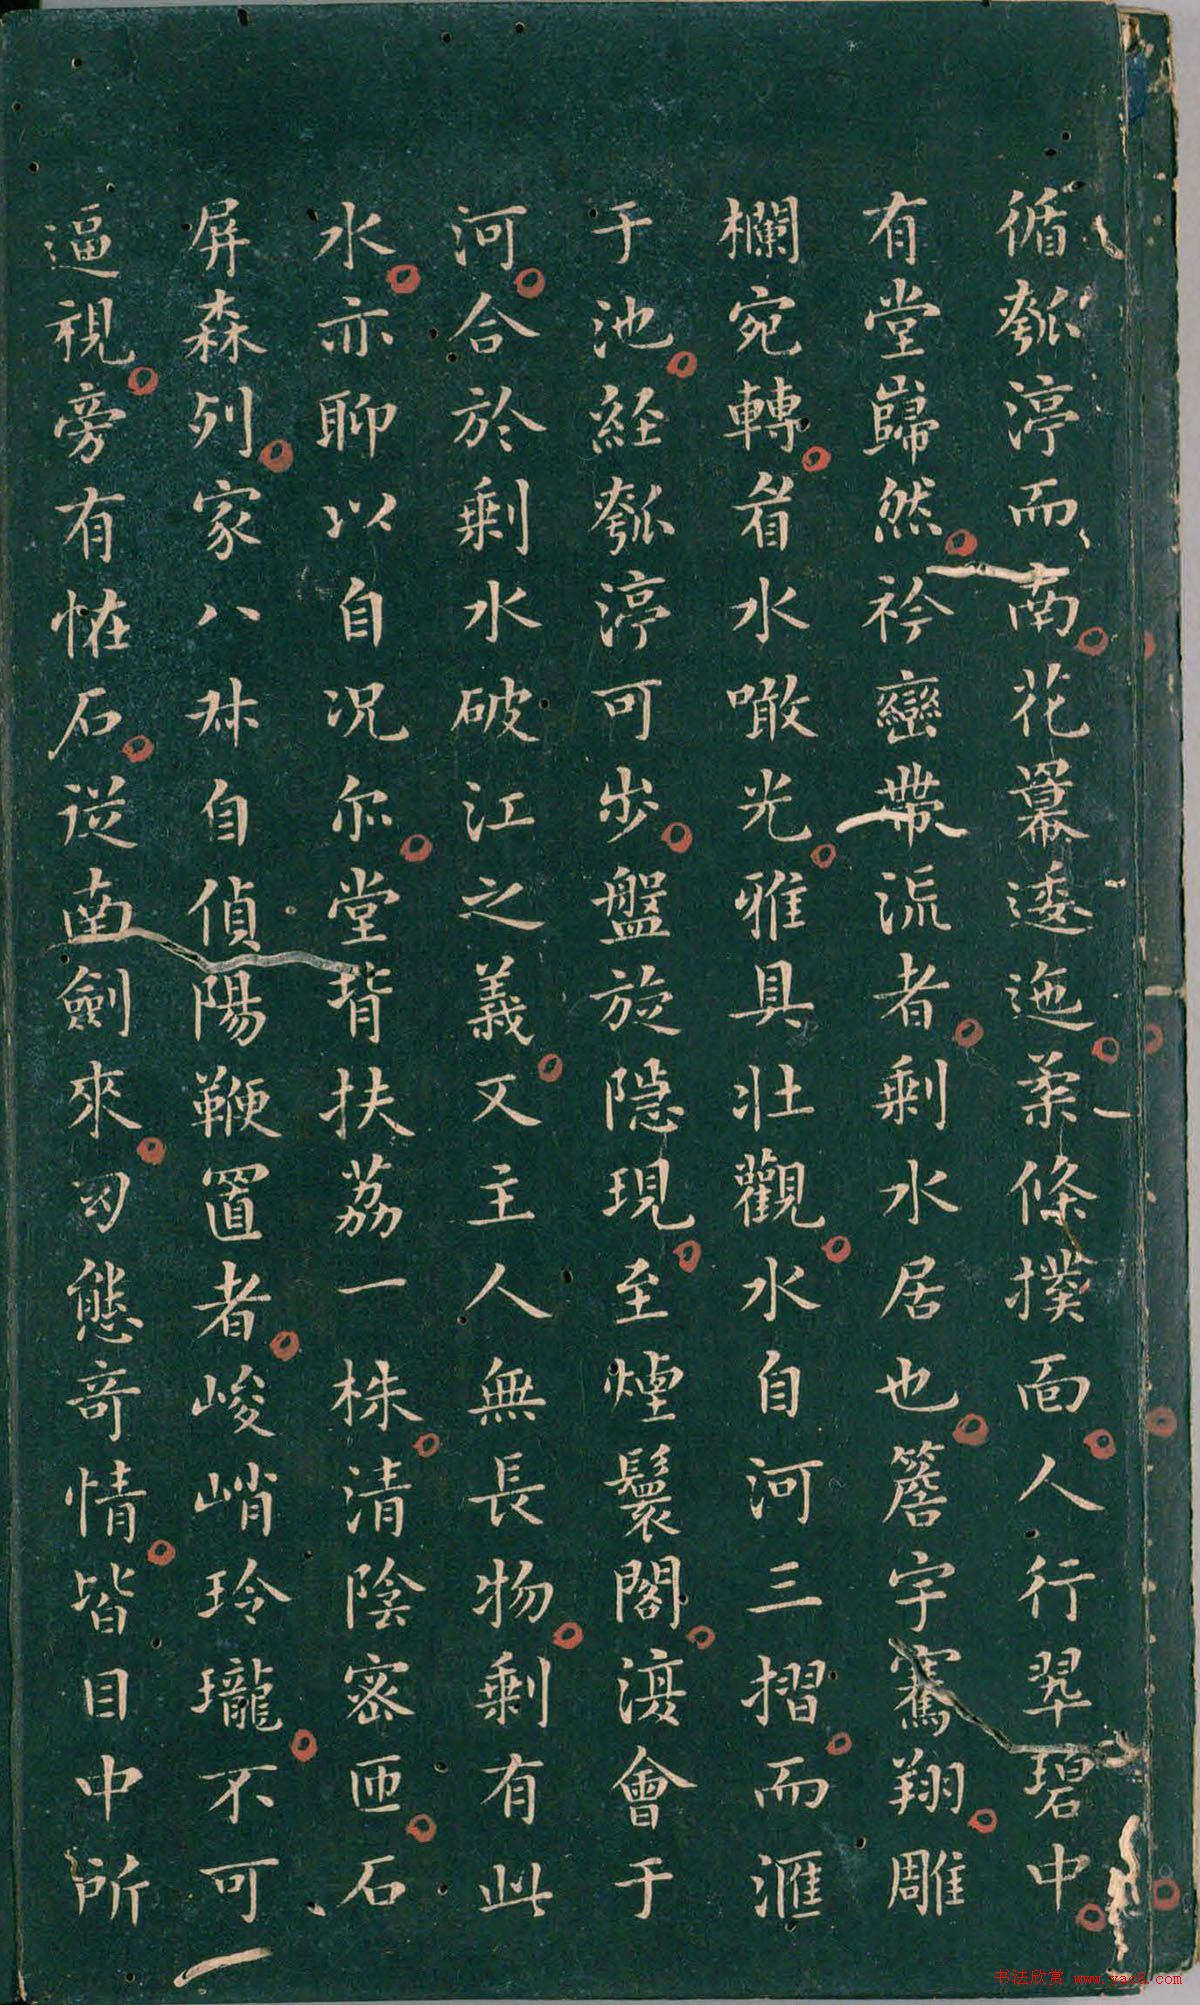 循瓠渟而南花羃逶迤柔條撲面人行翠碧中
有堂巋然衿巒帶流者剩水居也簷宇騫翔雕
欄宛轉眷水噉光雅具壯觀水自河三摺而滙
于池経瓠渟可步盤旋隱現至煙鬟閣渡會于
河合於剩水破江之義又主人無長物剩有此
水亦聊以自況尔堂背扶荔一株清陰密匝石
屏森列家八叔自偵陽鞭置者峻峭玲瓏不可
逼視旁有恠石從南劍來幻態奇情皆目中所
书法欣赏 www.yac8.com